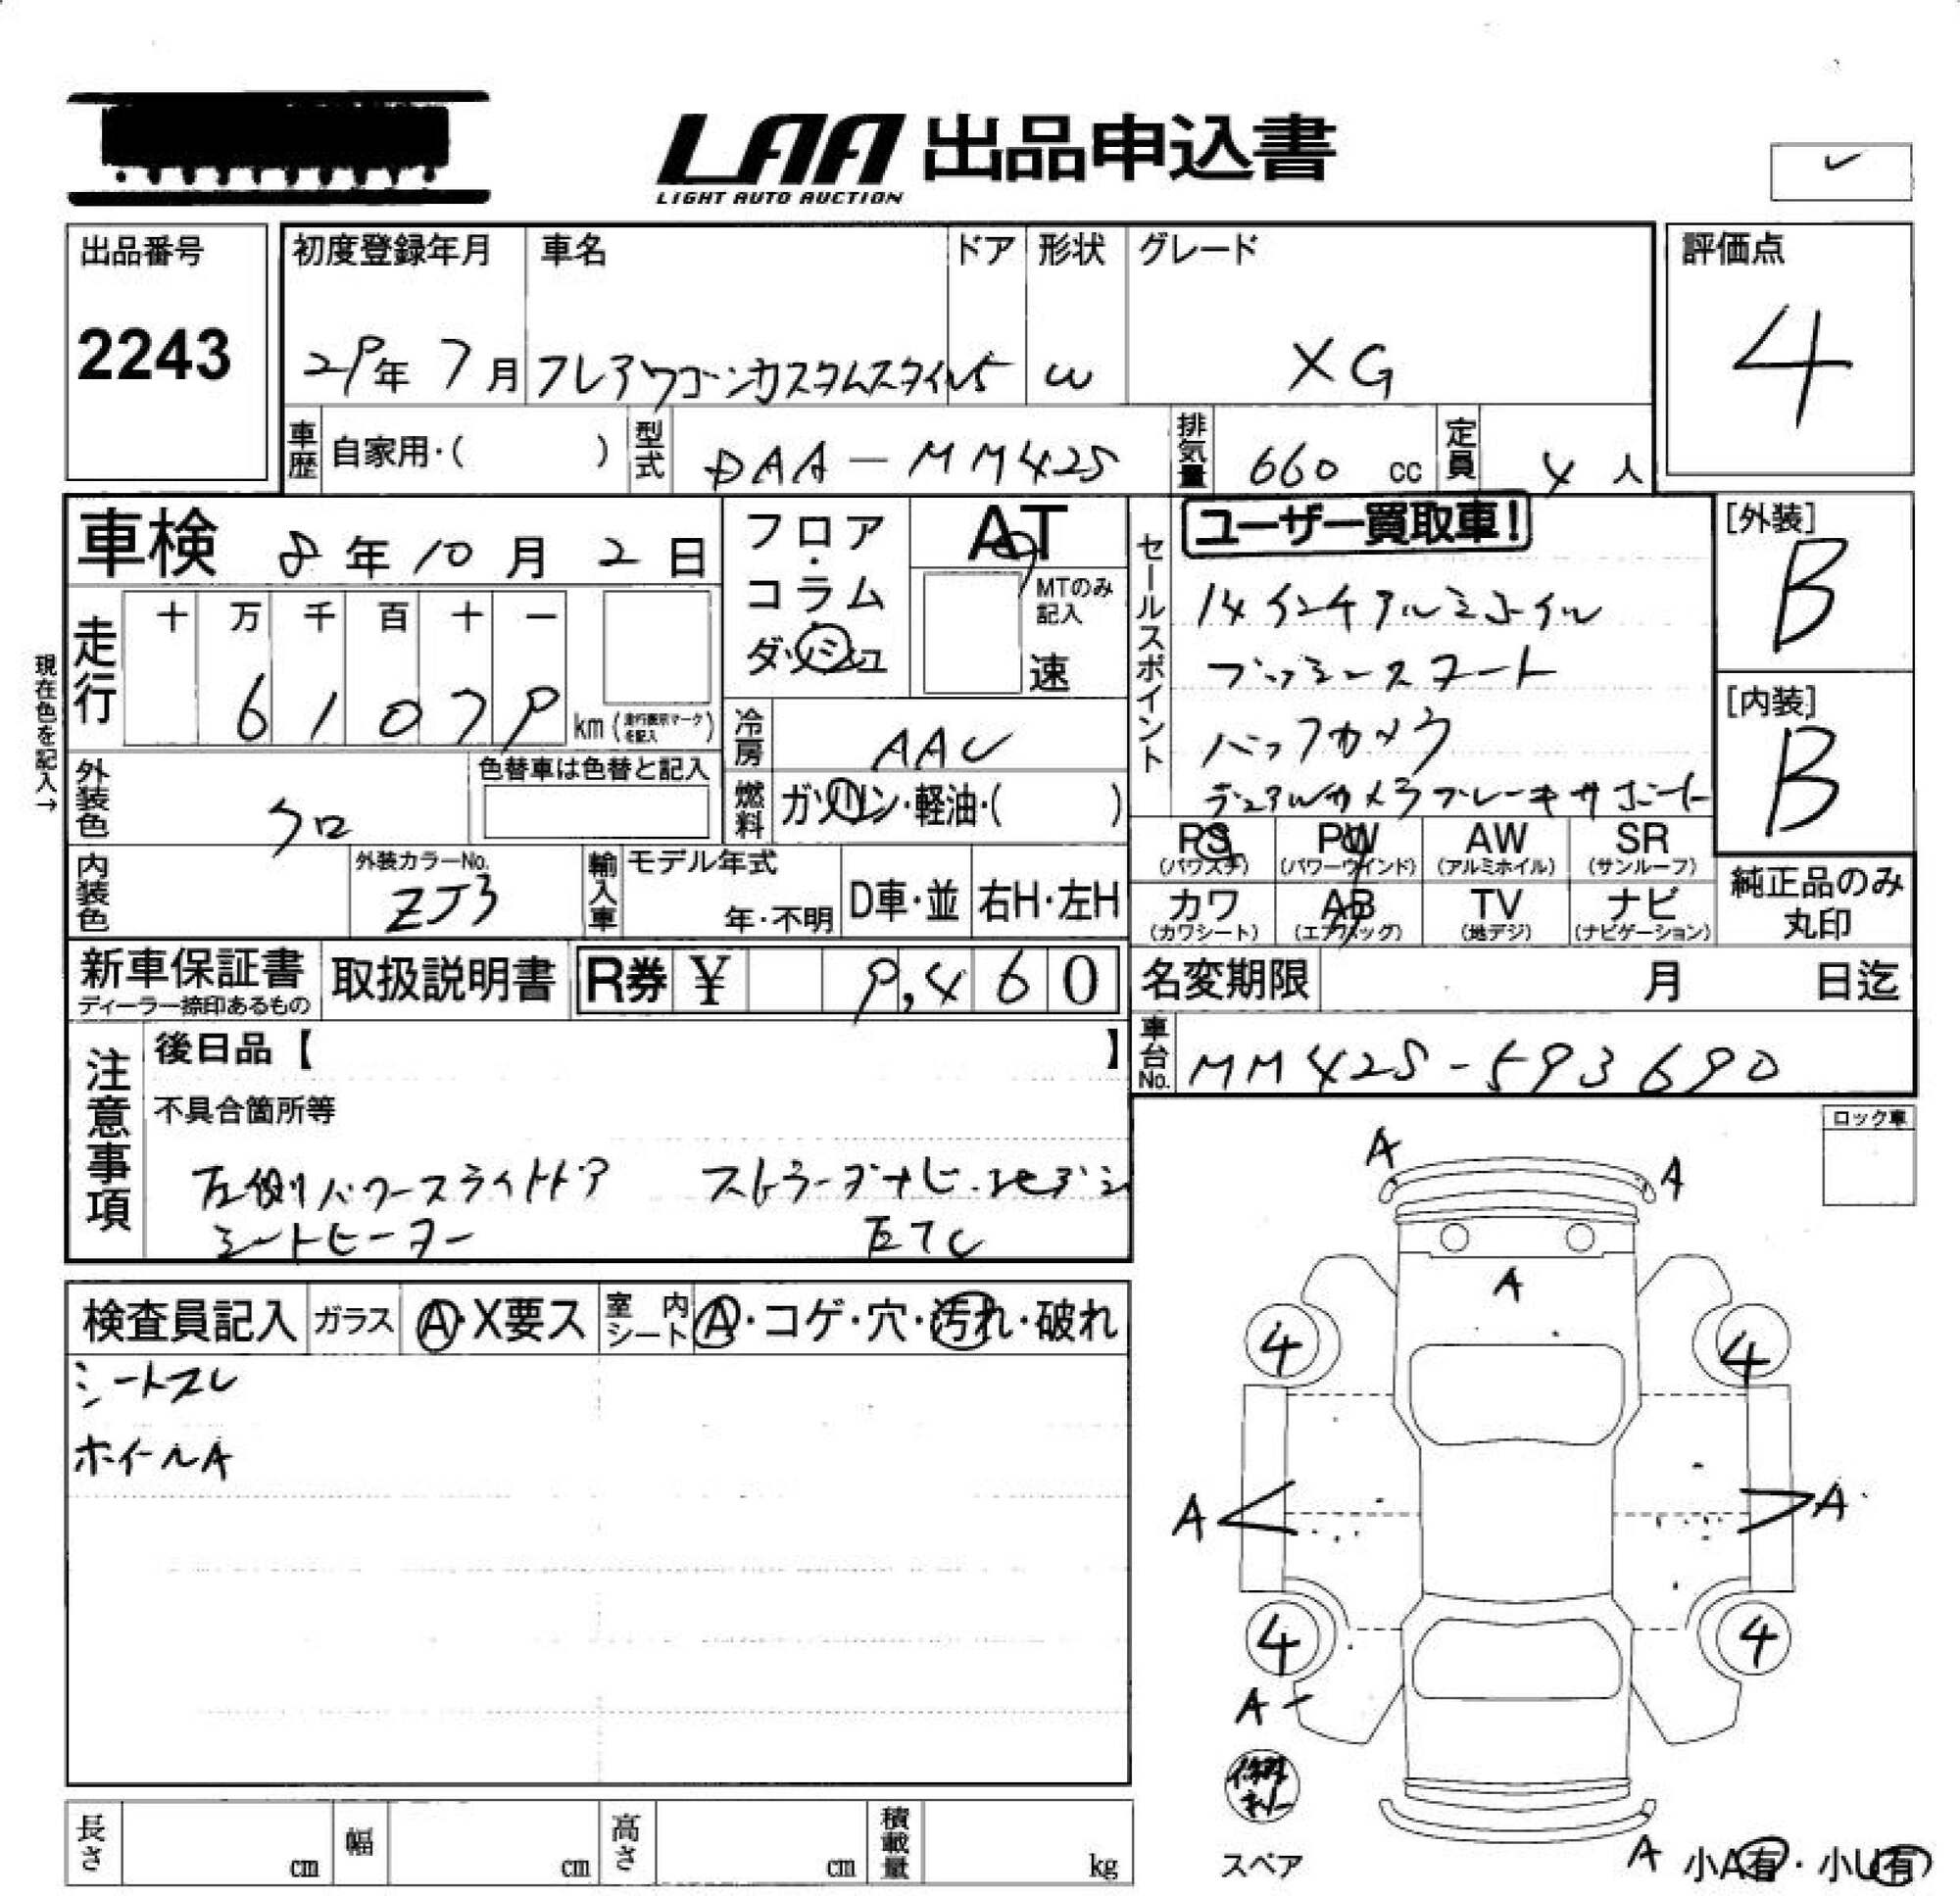 LAA 出品申込書
LIGHT AUTO AUCTION
出品番号
2243
初度登録年月
29年 7月
車名
フレアワゴンカスタムスタイル
ドア
5
形状
W
グレード
XG
評価点
4
車歴 自家用・( )
型式 DAA-MM42S
排気量 660 cc
定員 4 人
車検 8年10月2日
フロア・コラム・ダッシュ
AT
MTのみ記入
速
セールスポイント
ユーザー買取車!
14インチアルミホイル
プッシュスタート
バックカメラ
デュアルカメラブレーキサポート
[外装]
B
[内装]
B
現在色を記入→
走行
十 万 千 百 十 一
6 1 0 7 9 km (走行表示マークを記入)
冷房 AAC
外装色 クロ
色替車は色替と記入
燃料 ガソリン・軽油・( )
PS (パワステ)
PW (パワーウインド)
AW (アルミホイル)
SR (サンルーフ)
カワ (カワシート)
AB (エアバッグ)
TV (地デジ)
ナビ (ナビゲーション)
純正品のみ丸印
内装色
外装カラーNo. ZJ3
輸入車
モデル年式
年・不明
D車・並
右H・左H
新車保証書
ディーラー捺印あるもの
取扱説明書
R券 ¥ 9,460
名変期限 月 日迄
車台No. MM42S-593690
注意事項
後日品【 】
不具合箇所等
左側パワースライドドア ストラーダナビ・フルセグ
シートヒーター ETC
ロック車
検査員記入
ガラス A・X要ス
室内シート A・コゲ・穴・汚れ・破れ
シートスレ
ホイールA
A
A
A
4
4
A
A
4
4
A
修理キット
スペア
A
小A有・小U有
長さ cm
幅 cm
高さ cm
積載量 kg